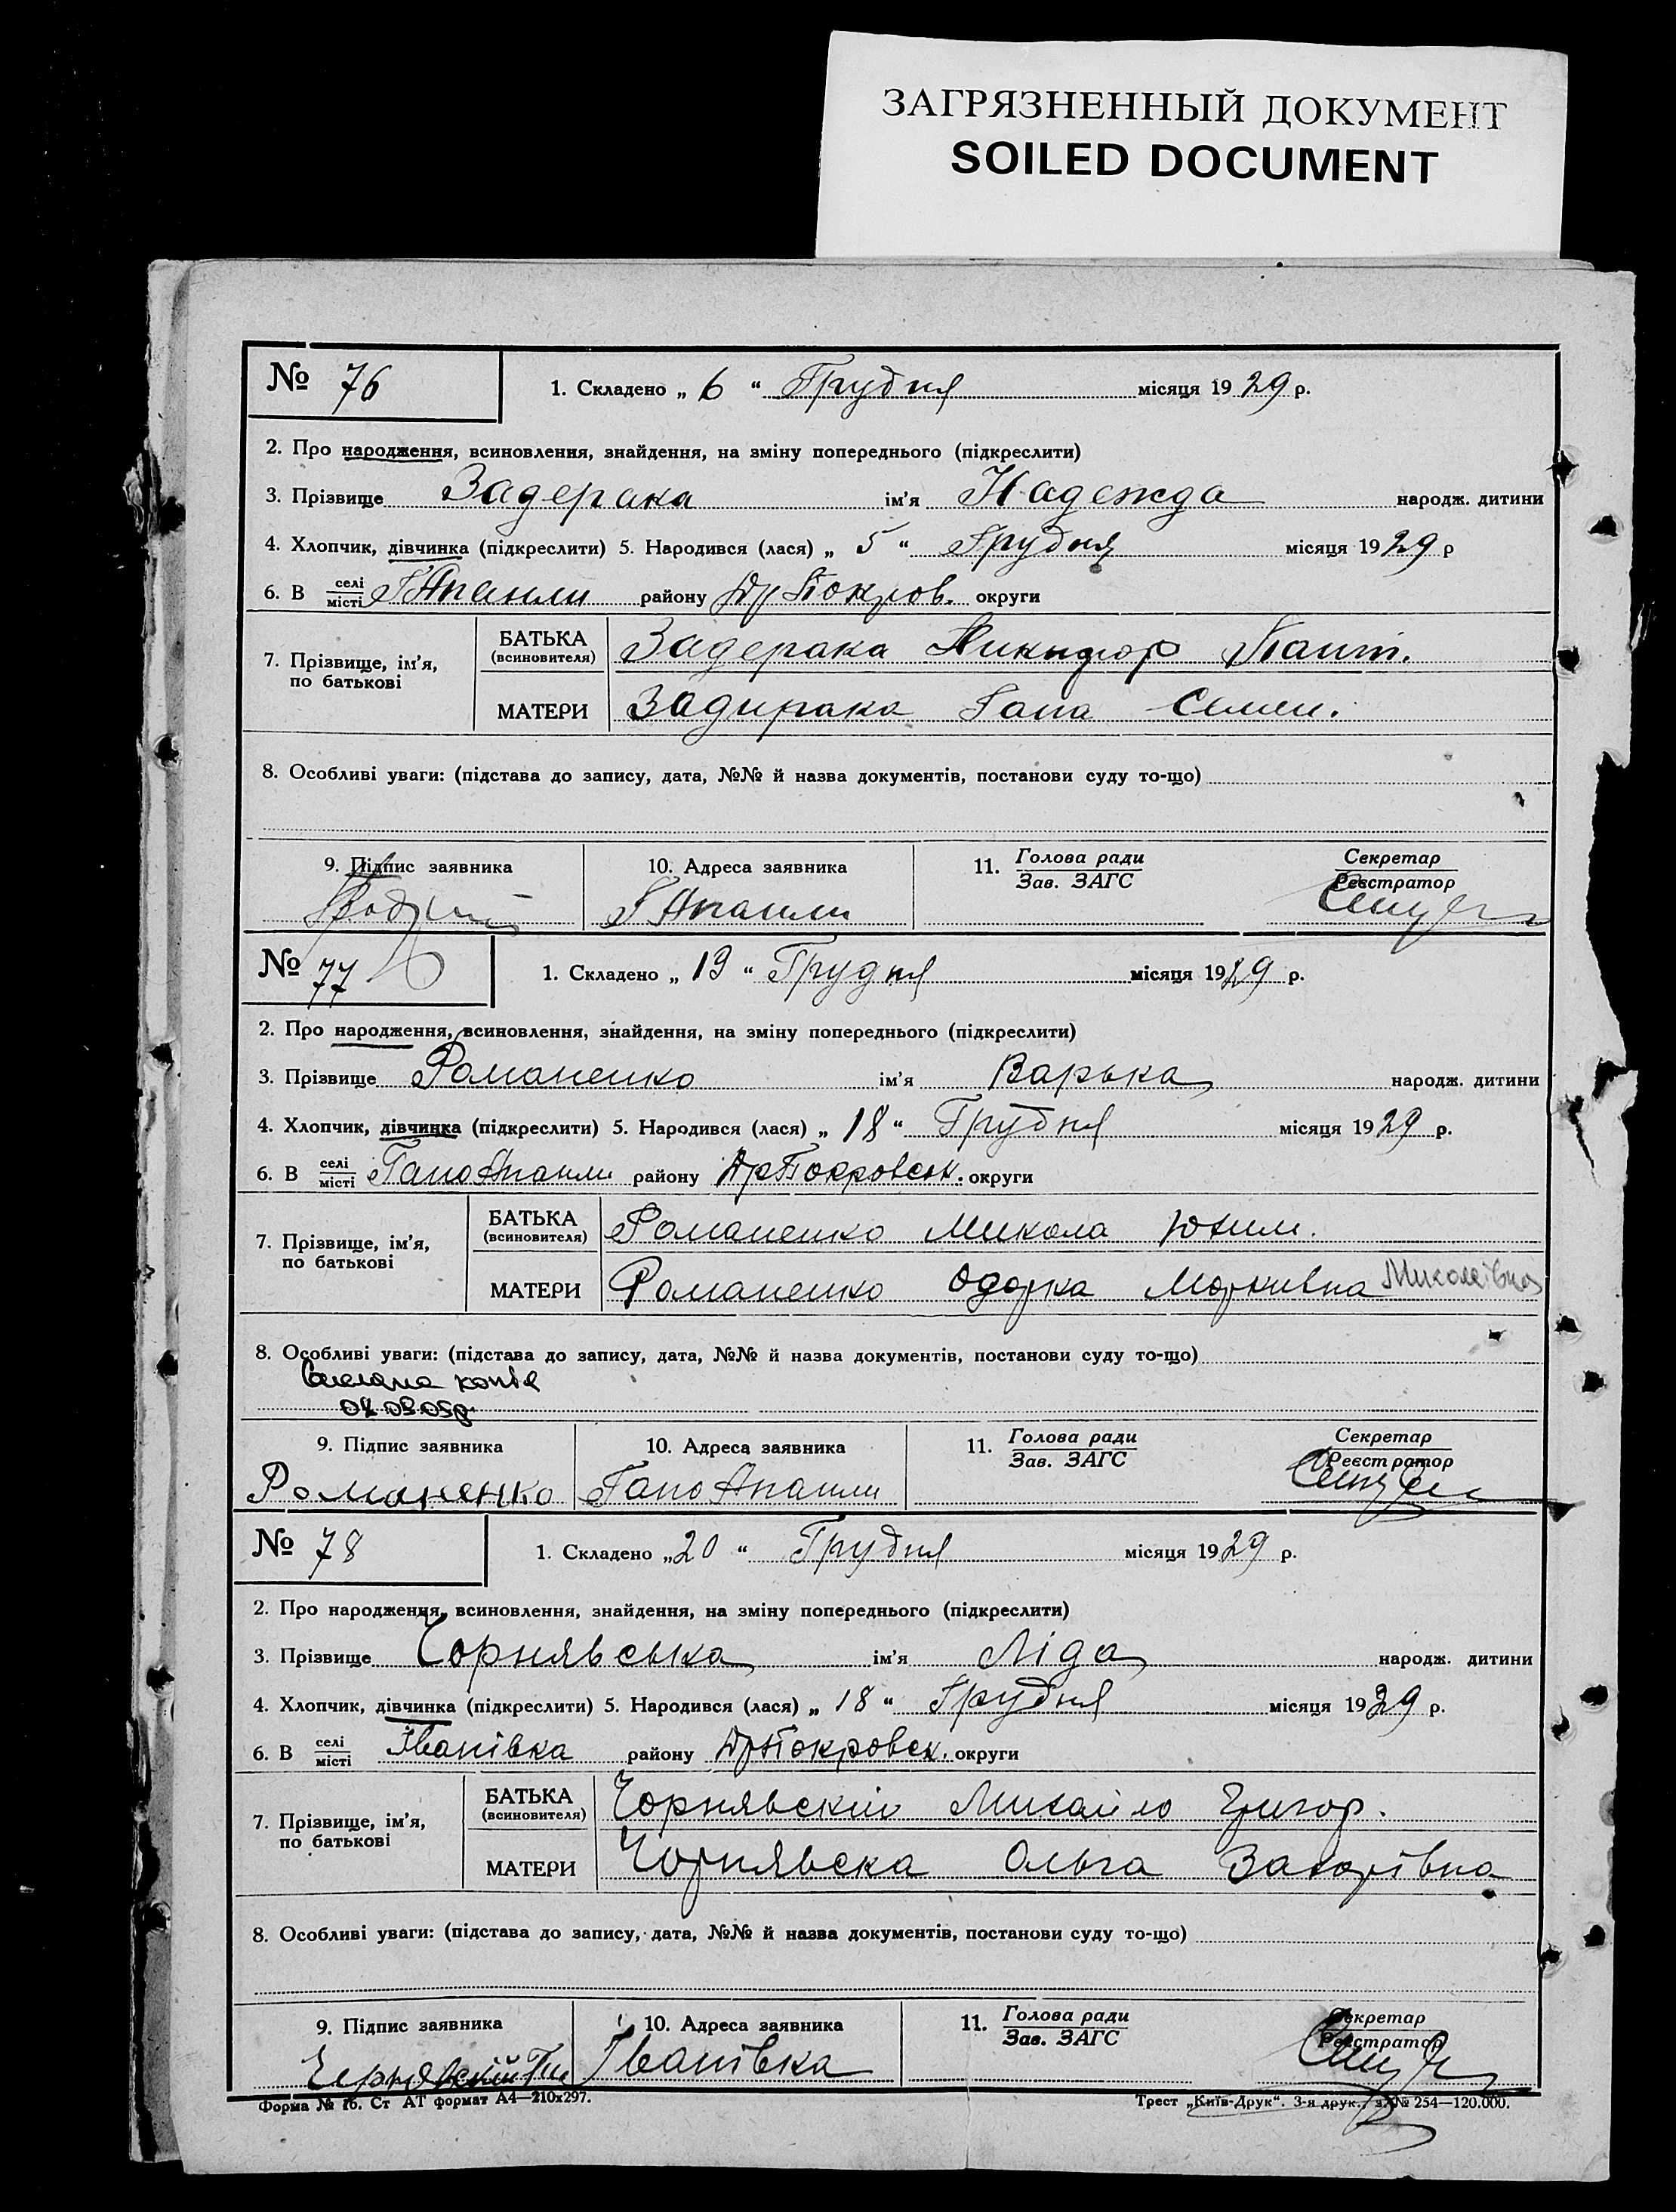 ЗАГРЯЗНЕННЫЙ ДОКУМЕНТ
SOILED DOCUMENT
№ 76
1. Складено „ 6 “ Грудня місяця 1929 р.
2. Про народження, всиновлення, знайдення, на зміну попереднього (підкреслити)
3. Прізвище Задерака ім’я Надежда народж. дитини
4. Хлопчик, дівчинка (підкреслити) 5. Народився (лася) „ 5 “ Грудня місяця 1929 р
6. В селі місті району Др Покров. округи
7. Прізвище, ім’я, по батькові
БАТЬКА (всиновителя) Задерака Никифор
МАТЕРИ Задирака Гапа Семен.
8. Особливі уваги: (підстава до запису, дата, №№ й назва документів, постанови суду то-що)
9. Підпис заявника 10. Адреса заявника 11. Голова ради Зав. ЗАГС Секретар Реєстратор
№ 77
1. Складено „ 19 “ Грудня місяця 1929 р.
2. Про народження, всиновлення, знайдення, на зміну попереднього (підкреслити)
3. Прізвище Романенко ім’я Варька народж. дитини
4. Хлопчик, дівчинка (підкреслити) 5. Народився (лася) „ 18 “ Грудня місяця 1929 р.
6. В селі місті району ДрПокровськ. округи
7. Прізвище, ім’я, по батькові
БАТЬКА (всиновителя) Романенко Микола Юхим.
МАТЕРИ Романенко Одарка Маркивна Миколаївна
8. Особливі уваги: (підстава до запису, дата, №№ й назва документів, постанови суду то-що)
копія
9. Підпис заявника 10. Адреса заявника 11. Голова ради Зав. ЗАГС Секретар Реєстратор
Романенко
№ 78
1. Складено „20 “ Грудня місяця 1929 р.
2. Про народження, всиновлення, знайдення, на зміну попереднього (підкреслити)
3. Прізвище Чорнявська ім’я Ліда народж. дитини
4. Хлопчик, дівчинка (підкреслити) 5. Народився (лася) „ 18 “ Грудня місяця 1929 р.
6. В селі місті Іванівка району ДрПокровськ. округи
7. Прізвище, ім’я, по батькові
БАТЬКА (всиновителя) Чорнявскій Михайло Григор.
МАТЕРИ Чорнявска Ольга Захарівна
8. Особливі уваги: (підстава до запису, дата, №№ й назва документів, постанови суду то-що)
9. Підпис заявника 10. Адреса заявника 11. Голова ради Зав. ЗАГС Секретар Реєстратор
Іванівка
Форма № 1б. Ст АТ формат А4—210х297. Трест „Київ-Друк“. 3-я друк., з. № 254—120.000.